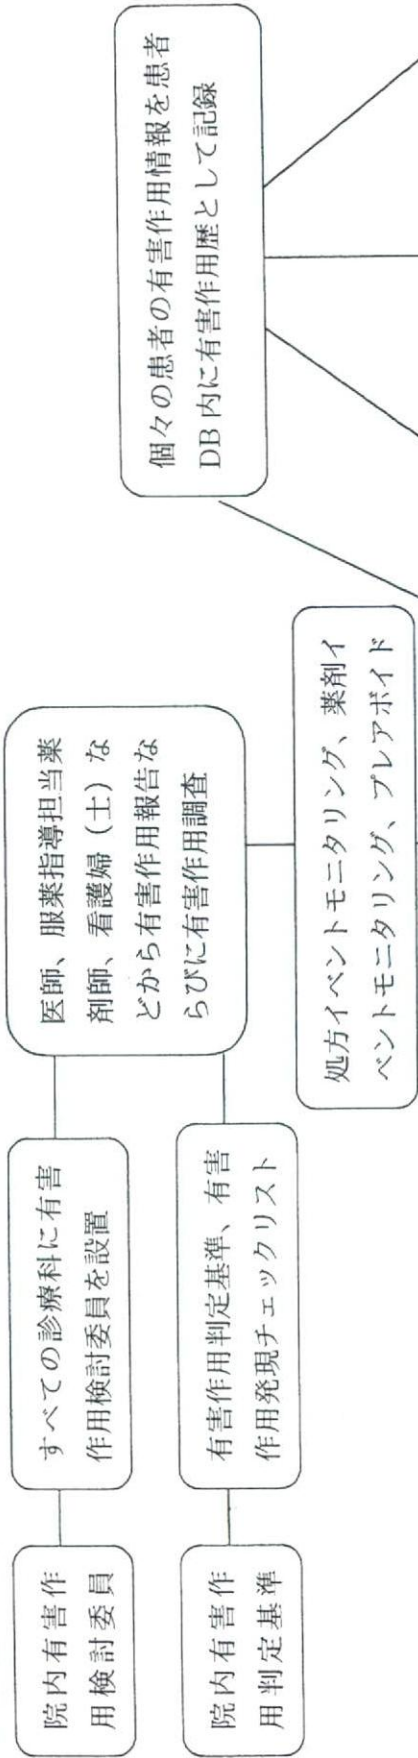 院内有害作
用検討委員
すべての診療科に有害
作用検討委員を設置
院内有害作
用判定基準
有害作用判定基準、有害
作用発現チェックリスト
医師、服薬指導担当薬
剤師、看護婦（士）な
どから有害作用報告な
らびに有害作用調査
処方イベントモニタリング、薬剤イ
ベントモニタリング、プレアボイド
個々の患者の有害作用情報を患者
DB内に有害作用歴として記録